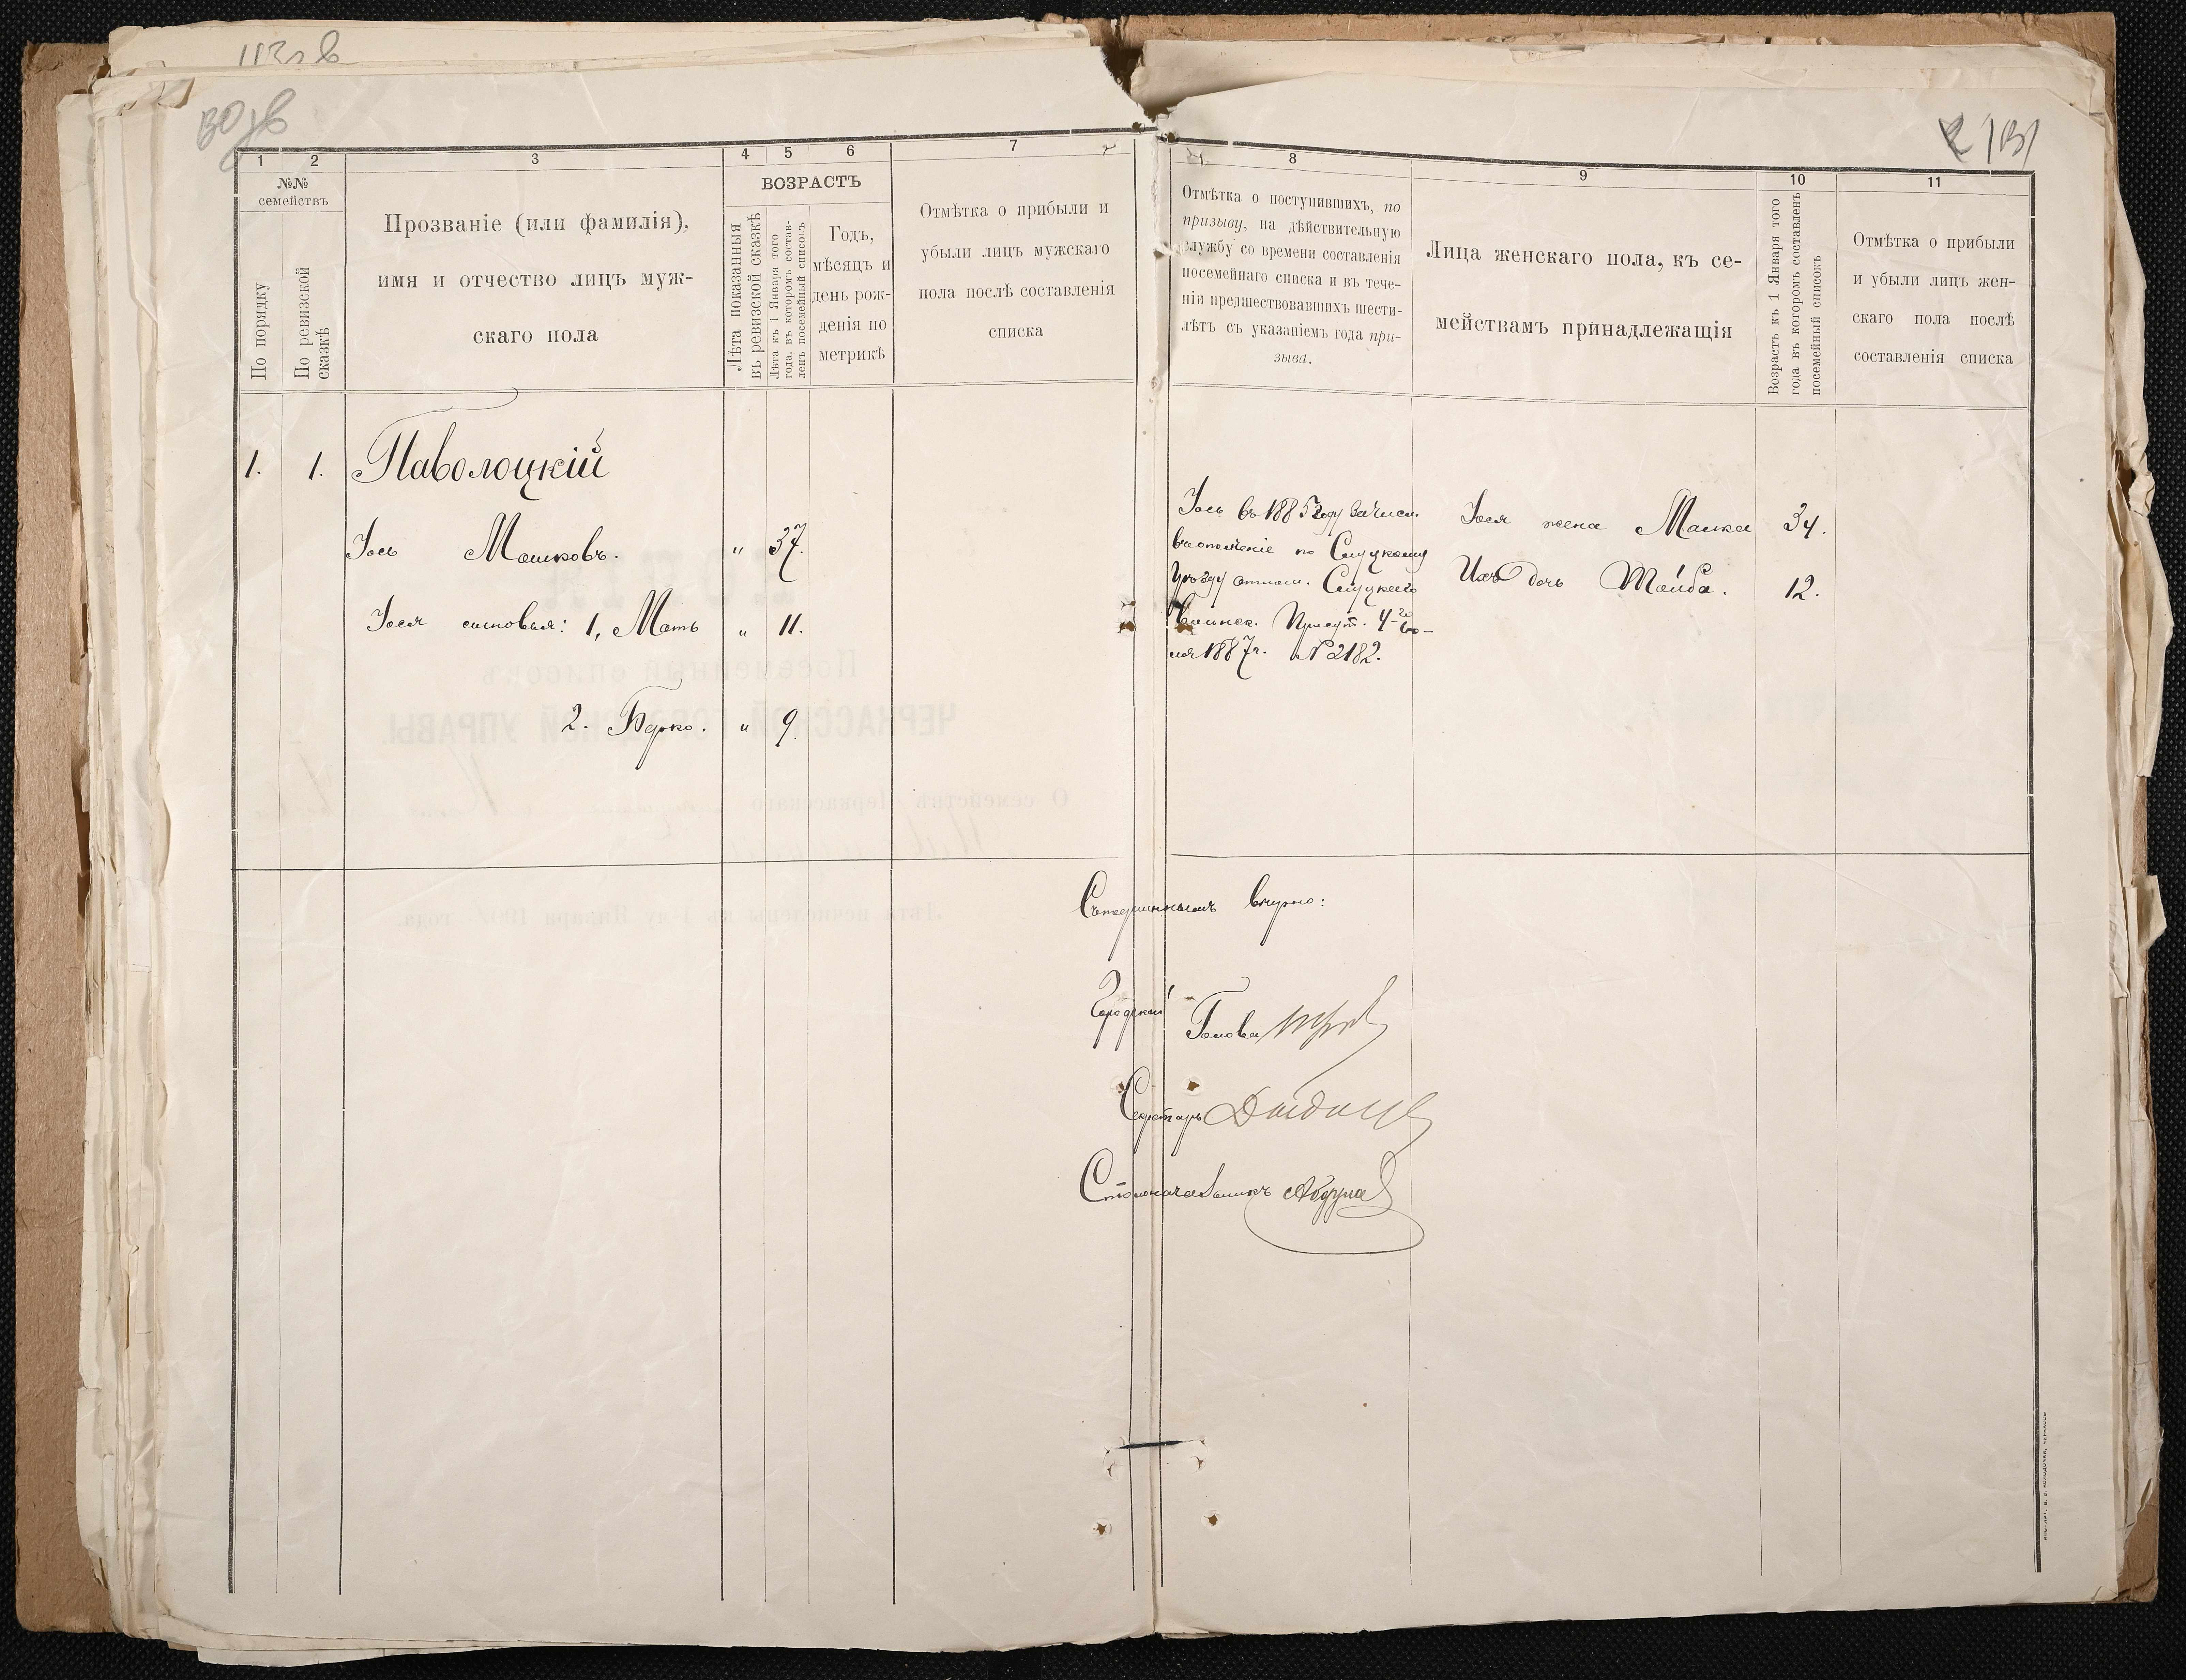 1 2 3 4 5 6 7
№№ семействъ
По порядку
По ревизской сказкѣ
Прозваніе (или фамилія),
имя и отчество лицъ муж-
скаго пола
ВОЗРАСТЪ
Лѣта показанныя
въ ревизской сказкѣ
Лѣта къ 1 Января того
года, въ которомъ состав-
ленъ посемейный списокъ
Годъ,
мѣсяцъ и
день рож-
денія по
метрикѣ
Отмѣтка о прибыли и
убыли лицъ мужскаго
пола послѣ составленія
списка
1. 1. Паволоцкій
Іось Мошковъ. " 37.
Іося сыновья: 1, Мотъ " 11.
2. Берко. " 9.
8 9 10 11
Отмѣтка о поступившихъ, по
призыву, на дѣйствительную
службу со времени составленія
посемейнаго списка и въ тече-
ніи предшествовавшихъ шести-
лѣтъ съ указаніемъ года при-
зыва.
Лица женскаго пола, къ се-
мействамъ принадлежащія
Возрастъ къ 1 Января того
года въ которомъ составленъ
посемейный списокъ
Отмѣтка о прибыли
и убыли лицъ жен-
скаго пола послѣ
составленія списка
Іось въ 1885 году зачисл.
въ ополченіе по Слуцкому
Уѣзду отнош. Слуцкаго
Воинск. Присут. 4-го Iю-
ля 1887 г. № 2182.
Іося жена Малка 34.
Ихъ дочь Тойба. 12.
Съ подлиннымъ вѣрно:
Городской Голова
Секретарь
Столоначальникъ